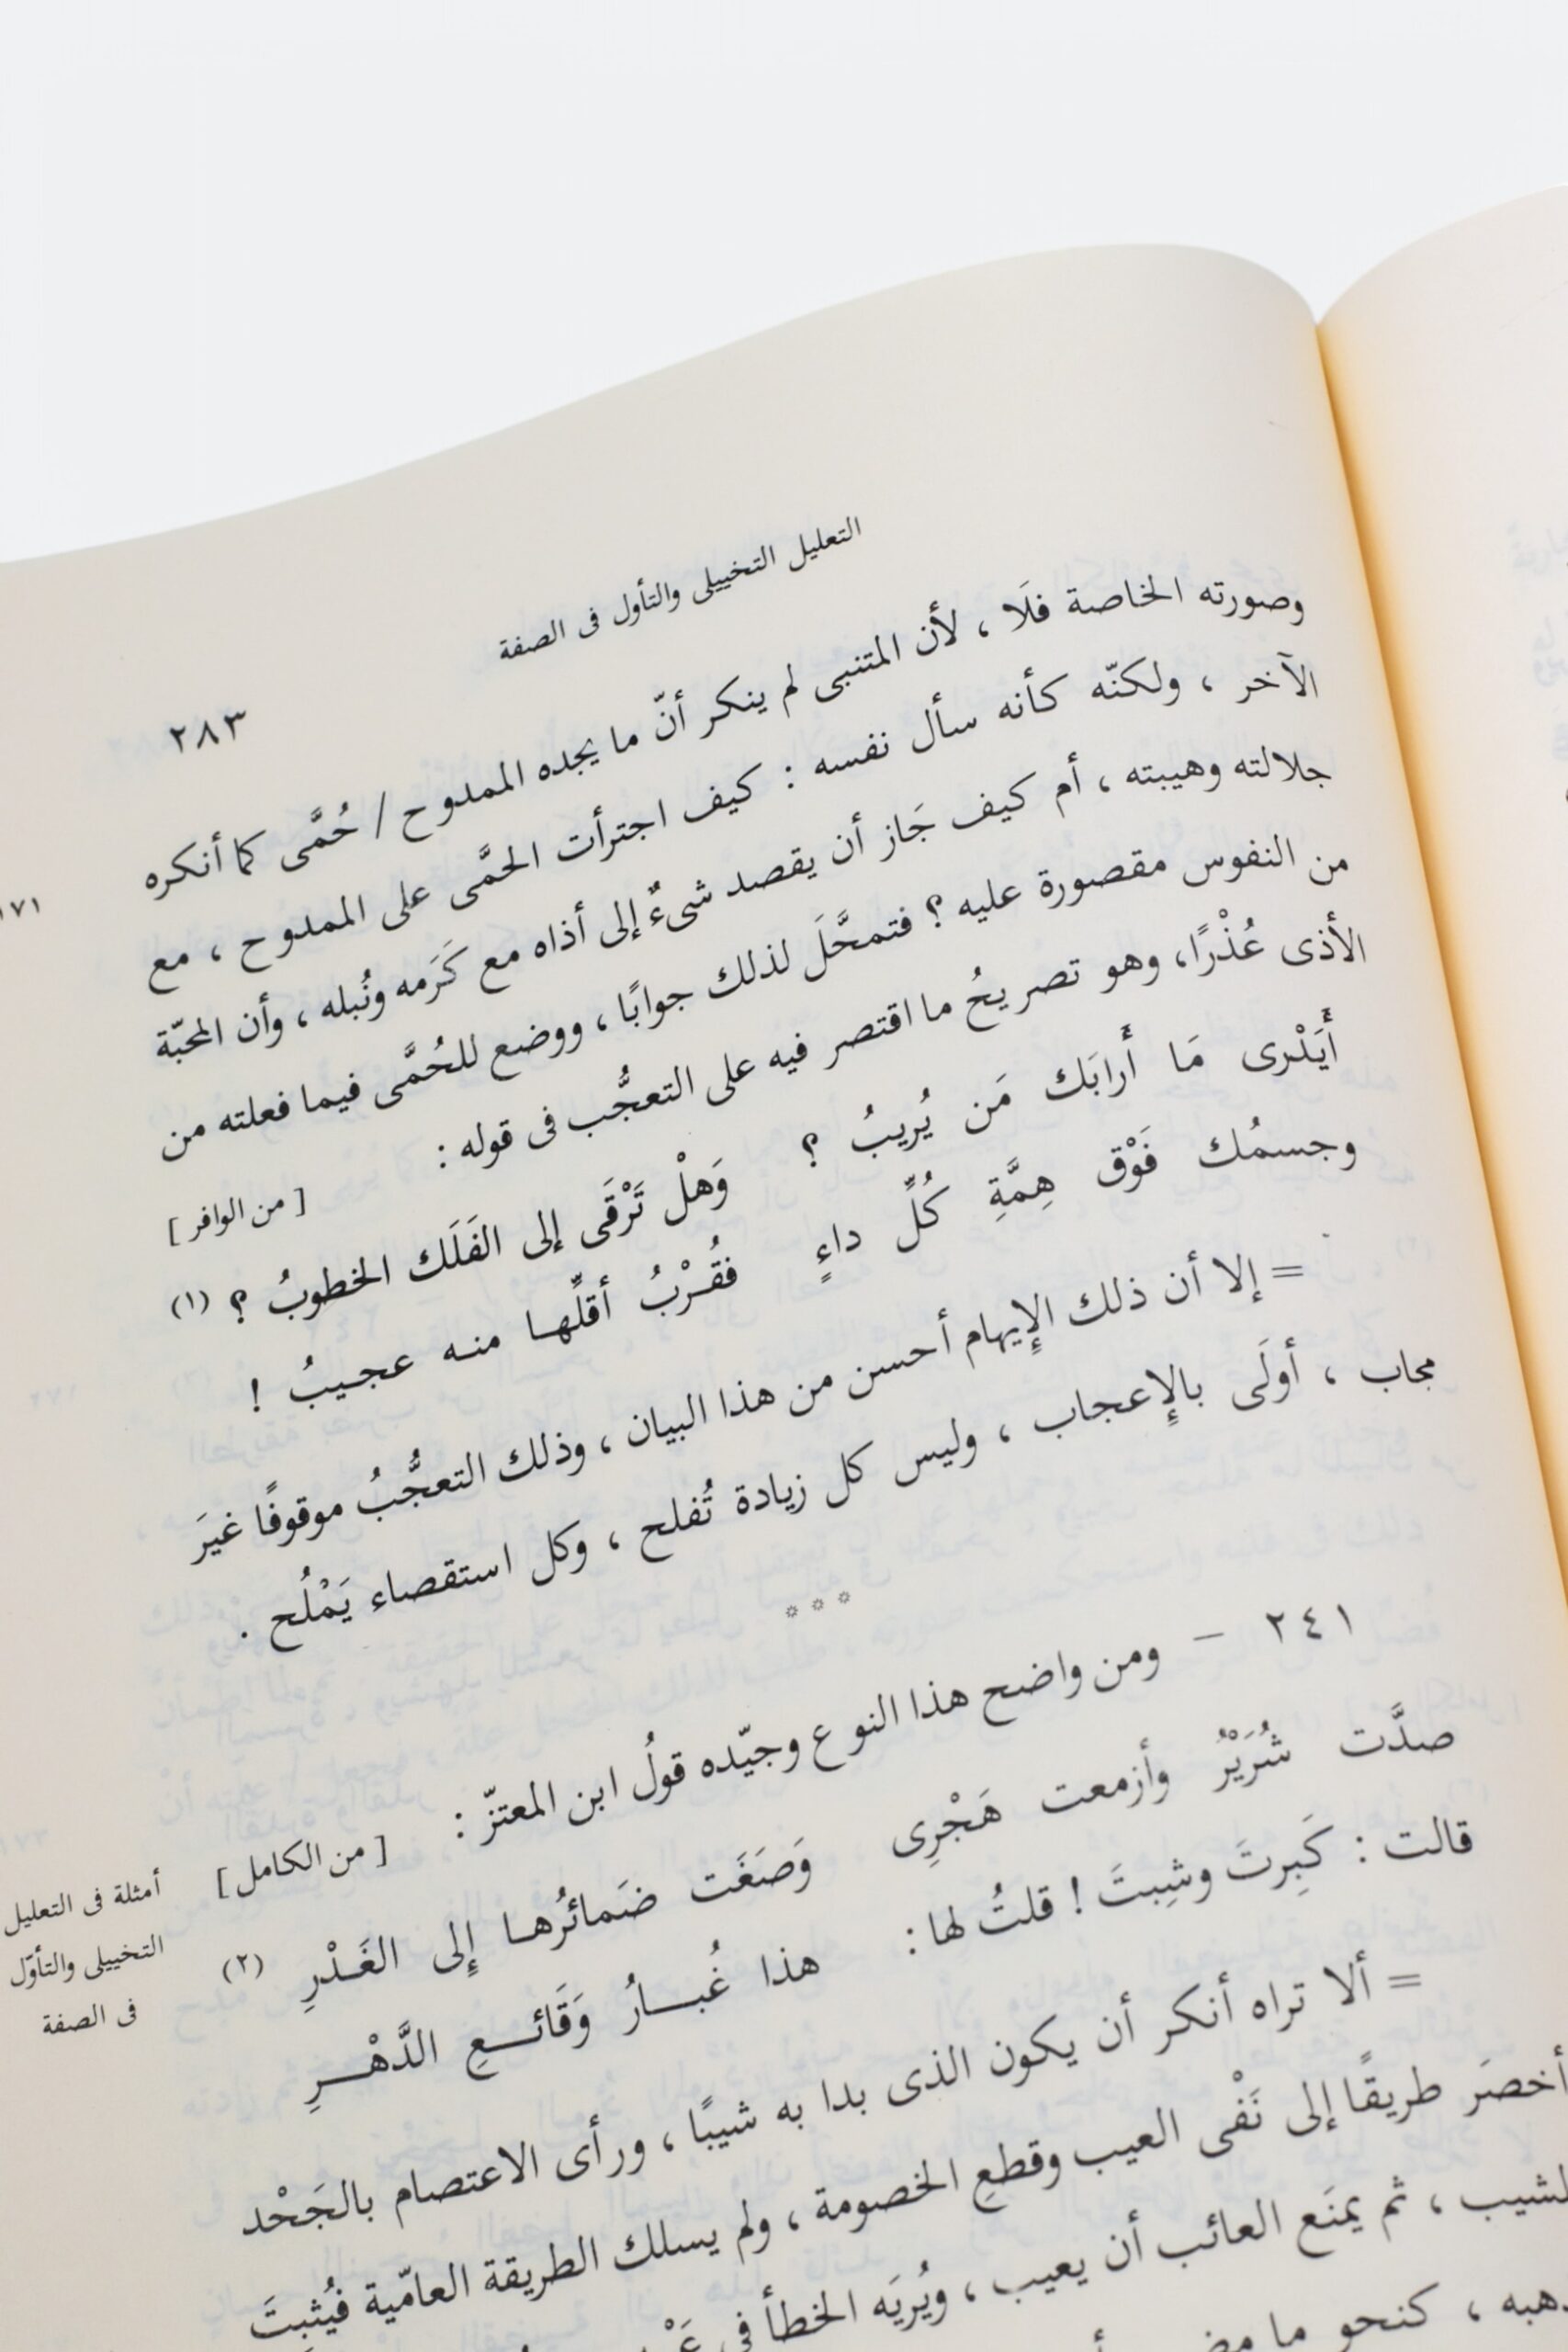 التعليل التخييلى والتأول فى الصفة
٢٨٣
وصورته الخاصة فلَا ، لأن المتنبى لم ينكر أنّ ما يجده الممدوح / حُمَّى كما أنكره
١٧١
الآخر ، ولكنّه كأنه سأل نفسه : كيف اجترأت الحمَّى على الممدوح ، مع
جلالته وهيبته ، أم كيف جَاز أن يقصد شىءٌ إلى أذاه مع كَرَمه ونُبله ، وأن المحبّة
من النفوس مقصورة عليه ؟ فتمحَّلَ لذلك جوابًا ، ووضع للحُمَّى فيما فعلته من
الأذى عُذْرًا، وهو تصريحُ ما اقتصر فيه على التعجُّب فى قوله : [ من الوافر ]
أَيَدْرى مَا أَرابَك مَن يُريبُ ؟ وَهلْ تَرْقَى إلى الفَلَك الخطوبُ ؟ (١)
وجسمُك فَوْق هِمَّةِ كُلِّ داءٍ فقُرْبُ أقلِّها منه عجيبُ !
= إلا أن ذلك الإيهام أحسن من هذا البيان ، وذلك التعجُّبُ موقوفًا غيرَ
مجاب ، أولَى بالإعجاب ، وليس كل زيادة تُفلح ، وكل استقصاء يَمْلُح .
* * *
٢٤١ – ومن واضح هذا النوع وجيّده قولُ ابن المعتزّ : [ من الكامل ]
صدَّت شُرَيْرُ وأزمعت هَجْرِى وَصَغَت ضَمائرُها إلى الغَدْرِ (٢)
قالت : كَبِرتَ وشِبتَ ! قلتُ لها : هذا غُبارُ وَقَائعِ الدَّهْرِ
أمثلة فى التعليل
التخييلى والتأوّل
فى الصفة
= ألا تراه أنكر أن يكون الذى بدا به شيبًا ، ورأى الاعتصام بالجَحْد
أخصَر طريقًا إلى نَفْى العيب وقطعِ الخصومة ، ولم يسلك الطريقة العامّية فيُثبتَ
لشيب ، ثم يمنَع العائب أن يعيب ، ويُريَه الخطأ فى
كنحو ما